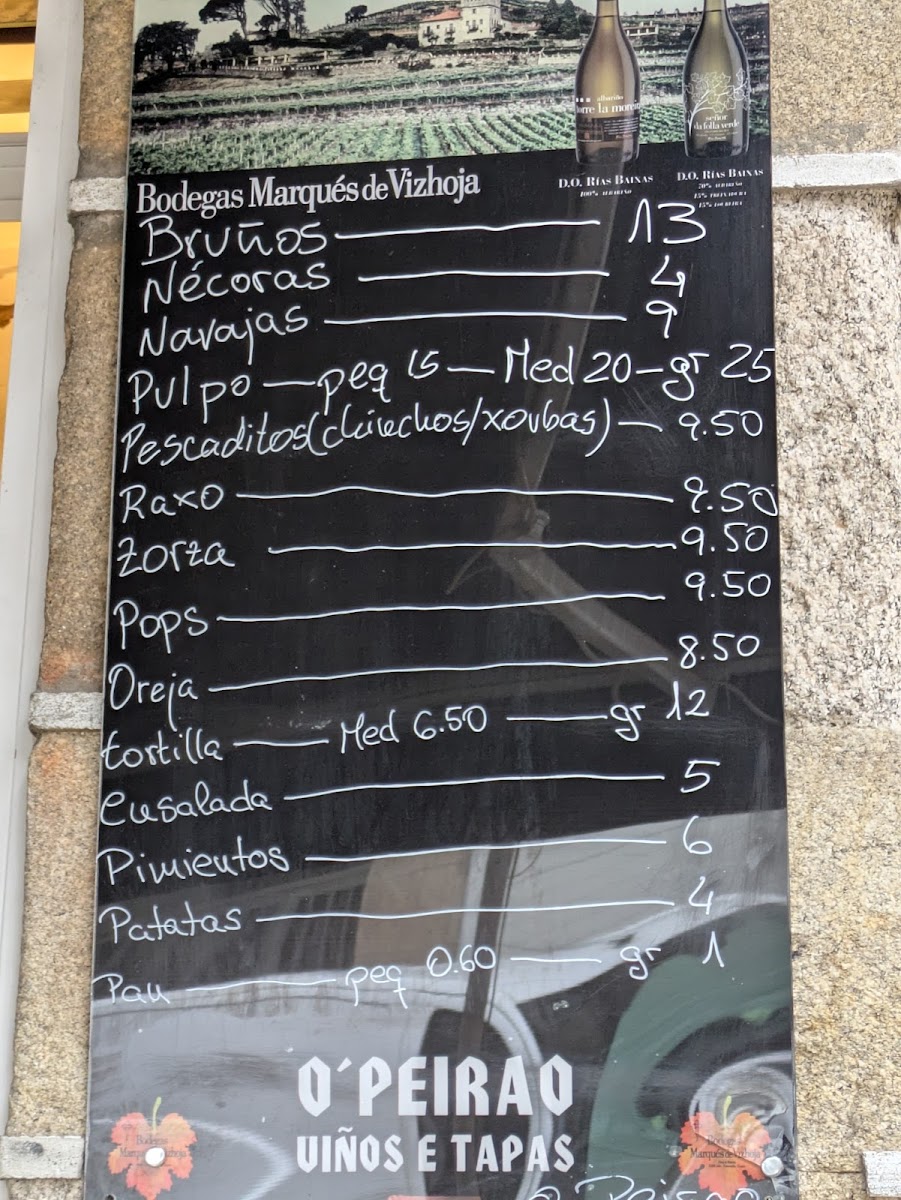 albariño
torre la moreira
señor
da folla verde
Bodegas Marqués de Vizhoja
D.O. RÍAS BAIXAS
100% ALBARIÑO
D.O. RÍAS BAIXAS
70% ALBARIÑO
15% TREIXADURA
15% LOUREIRA
Bruños 13
Nécoras 4
Navajas 9
Pulpo — peq 15 — Med 20 — gr 25
Pescaditos (chinchos/xoubas) — 9.50
Raxo 9.50
Zorza 9.50
Pops 9.50
Oreja 8.50
tortilla — Med 6.50 — gr 12
Ensalada 5
Pimientos 6
Patatas 4
Pan — peq 0.60 — gr 1
O´PEIRAO
VIÑOS E TAPAS
Bodegas
Marqués de Vizhoja
Bodegas
Marqués de Vizhoja